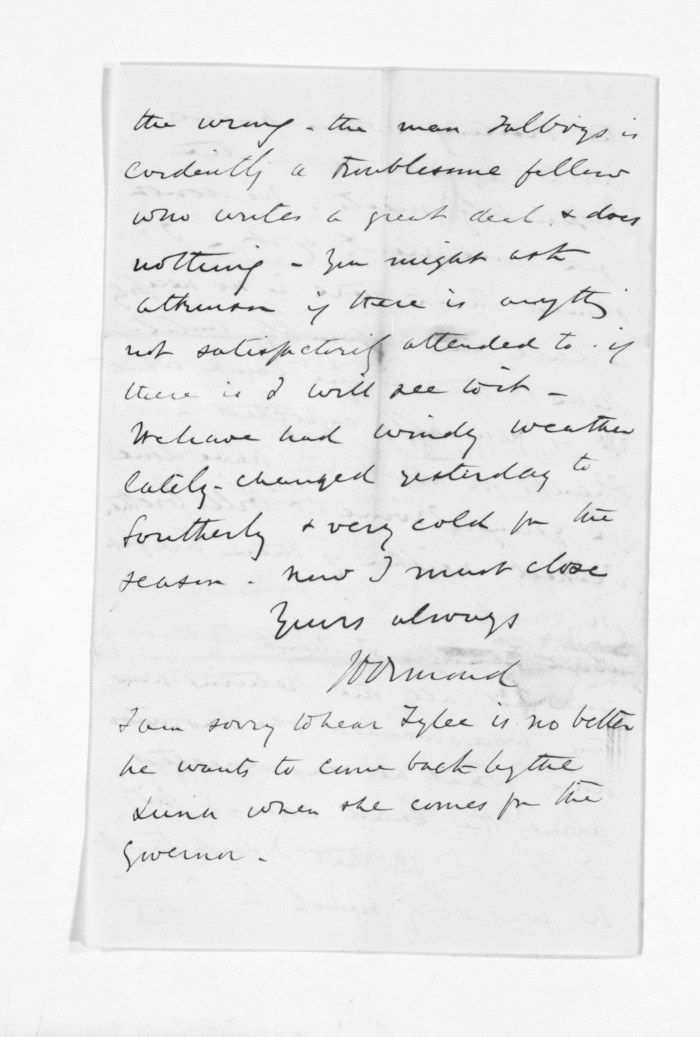 the wrong - the man Talboys is
evidently a troublesome fellow
who writes a great deal & does
nothing - You might ask
Atkinson if there is anything
not satisfactorily attended to - if
there is I will see to it -
We have had windy weather
lately - changed yesterday to
Southerly & very cold for the
season - Now I must close
Yours always
JDOrmond
I am sorry to hear Tylee is no better
he wants to come back by the
Luna when she comes for the
Governor -